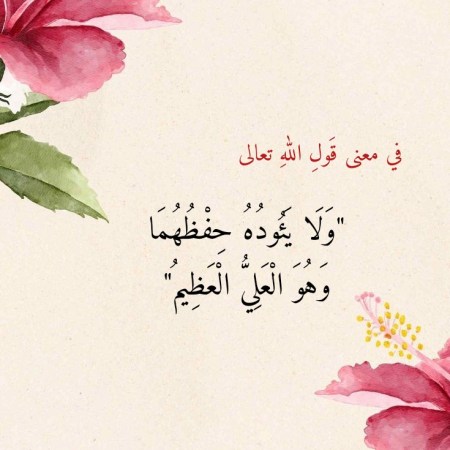 في معنى قَولِ اللهِ تعالى
"وَلَا يَئُودُهُ حِفْظُهُمَا
وَهُوَ الْعَلِيُّ الْعَظِيمُ"